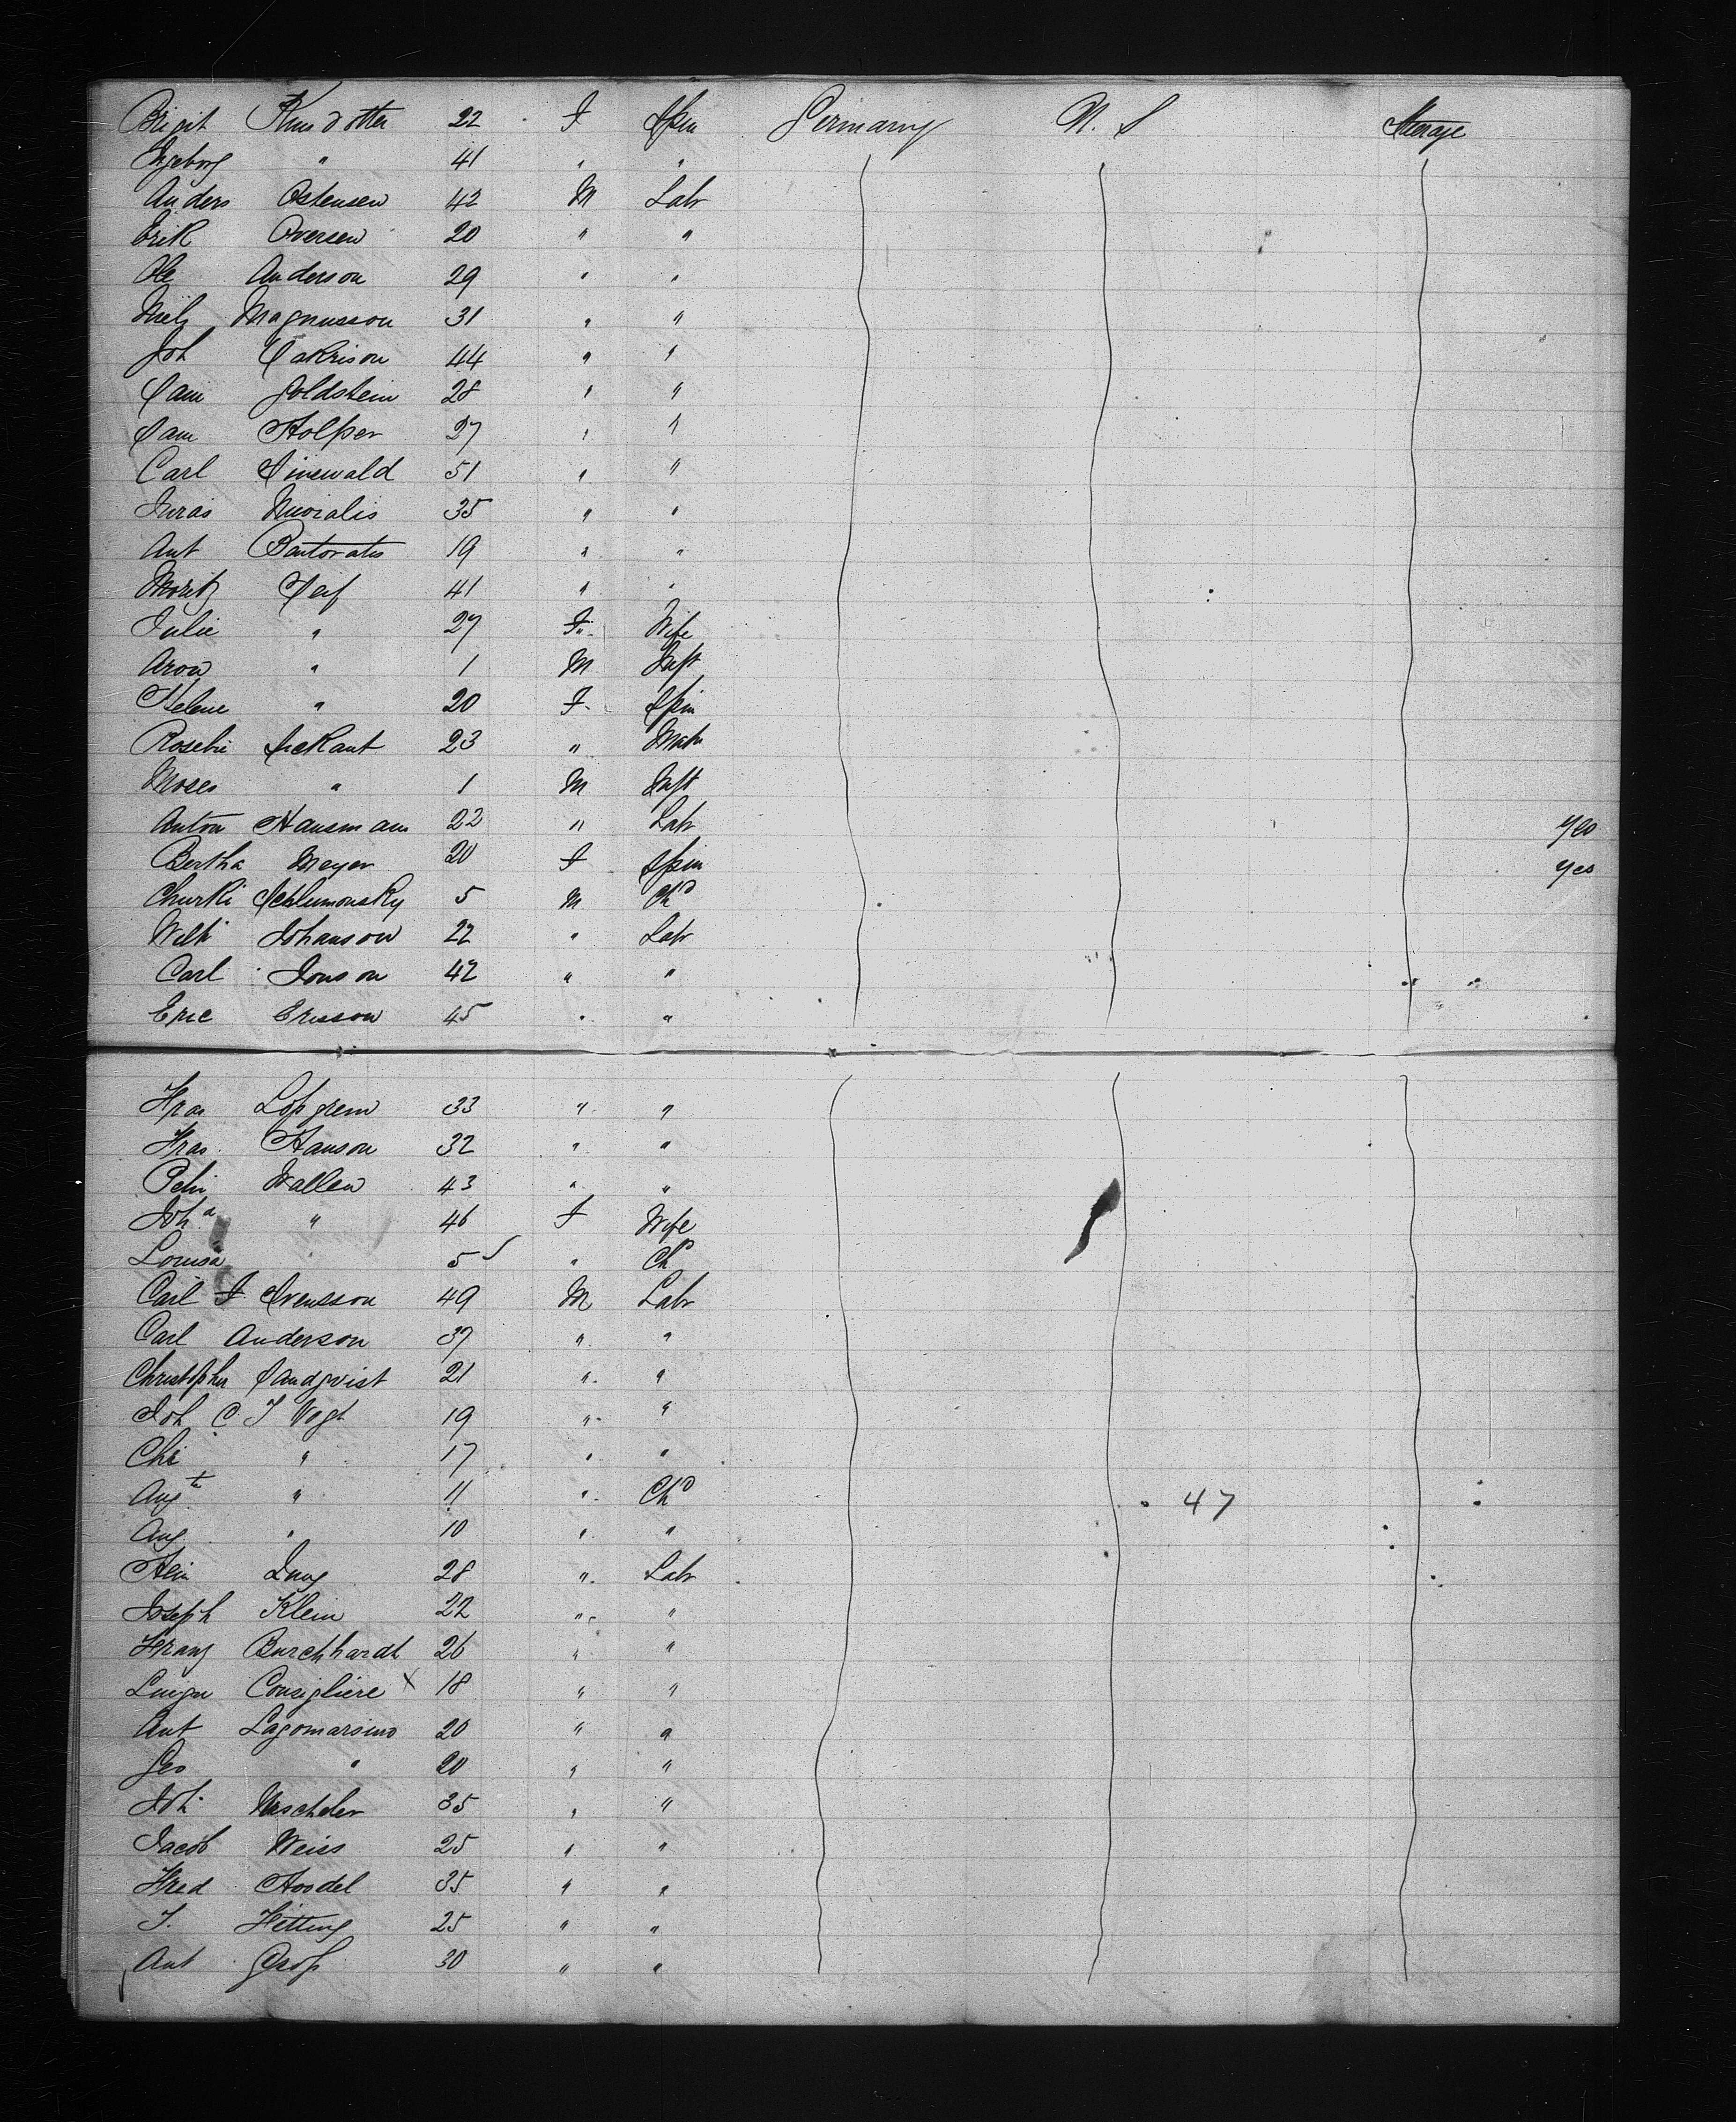 Brigit Knusdotter 22 F Spin Germany U. S Steerage
Ingeborg " 41 " "
Anders Ostensen 42 M Labr
Erik Oversen 20 " "
Ole Anderson 29 " "
Niels Magnusson 31 " "
Joh Sakrison 44 " "
Sam Goldstein 28 " "
Sam Stolper 27 " "
Carl Sinewald 51 " "
Juras 35 " "
Ant 19 " "
Moritz Seif 41 " "
Julie " 27 F Wife
Aron " 1 M Inft
Helene " 20 F Spin
Rosebie 23 " Matr
Moses " 1 M Inft
Anton Hausmann 22 " Labr yes
Bertha Meyer 20 F Spin yes
Churki Schlumonsky 5 M Chd
Johanson 22 " Labr
Carl Jonson 42 " "
Eric Ericsson 45 " "
Fras Lofgren 33 " "
Fras Hanson 32 " "
Petr Wallen 43 " "
Joha " 46 F Wife
Louisa " 5 " Chd
Carl F Svensson 49 M Labr
Carl Anderson 37 " "
Christopher Sandqvist 21 " "
Joh C. F Vogt 19 " "
Chr " 17 " "
Augte " 11 " Chd 47
Aug " 10 " "
Hein Jung 28 " Labr
Joseph Klein 22 " "
Franz Burchhardt 26 " "
Luigu Consigliere X 18 " "
Ant Lagomarsino 20 " "
Geo " 20 " "
Joh 35 " "
Jacob Weiss 25 " "
Fred 35 " "
F. Fitting 25 " "
Ant Groß 30 " "